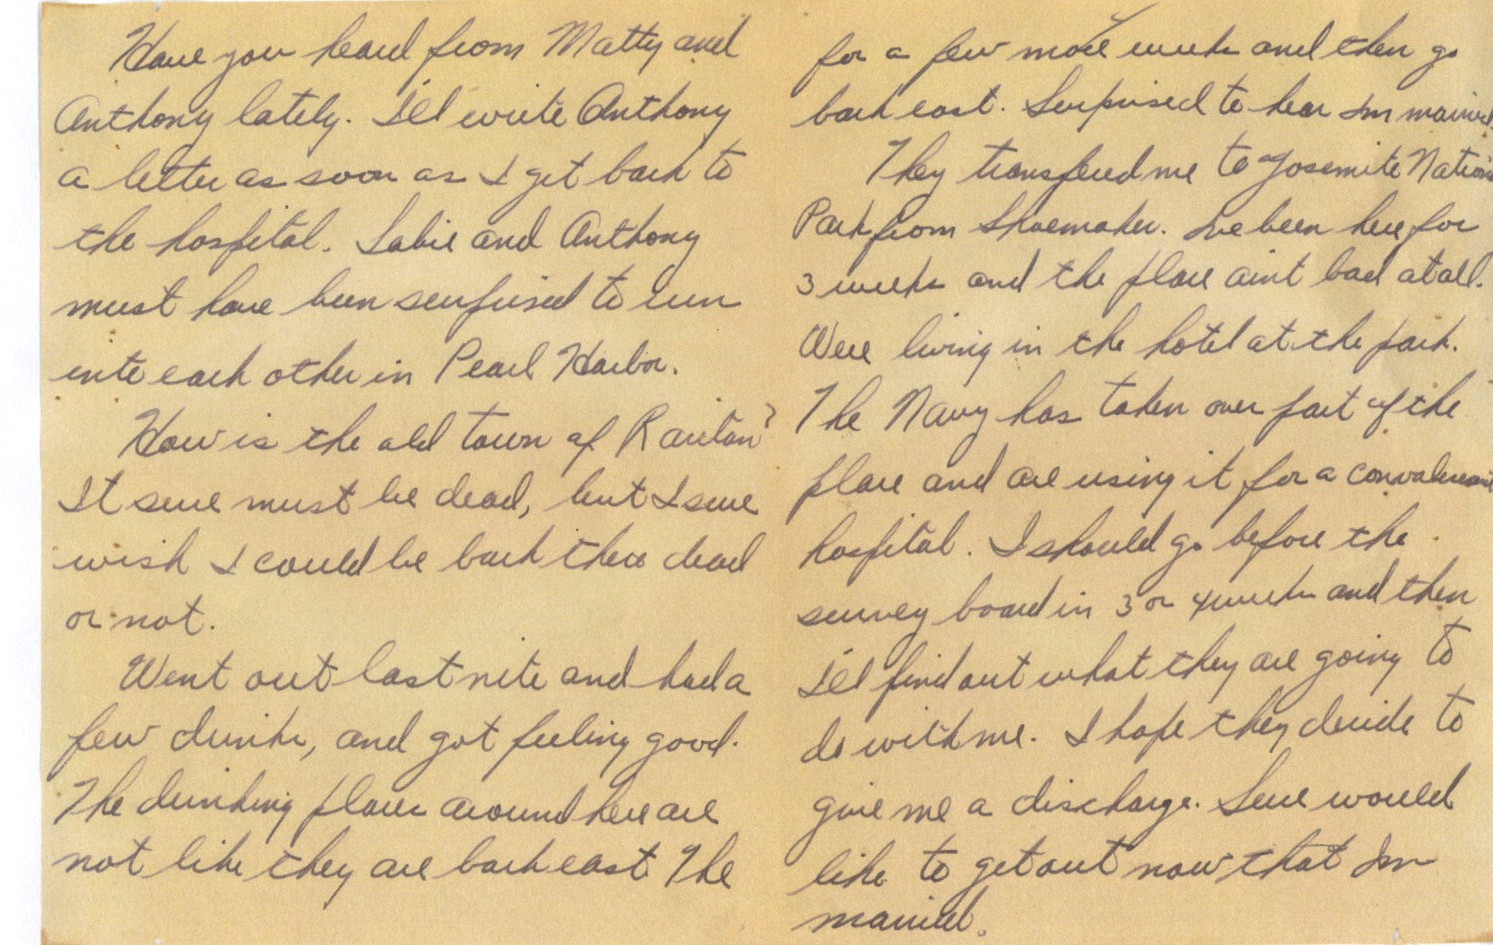 Have you heard from Matty and
Anthony lately. I'll write Anthony
a letter as soon as I get back to
the hospital. and Anthony
must have been surprised to run
into each other in Pearl Harbor.
How is the old town of Raritan?
It sure must be dead, but I sure
wish I could be back there dead
or not.
Went out last nite and had a
few drinks, and got feeling good.
The drinking places around here are
not like they are back east The
for a few more weeks and then go
back east. Surprised to hear Im married.
They transfered me to Yosemite Nation
Park from Shoemaker. Ive been here for
3 weeks and the place aint bad at all.
Were living in the hotel at the park.
The Navy has taken over part of the
place and are using it for a convalescent
hospital. I should go before the
survey board in 3 or 4 weeks and then
I'll find out what they are going to
do with me. I hope they decide to
give me a discharge. Sure would
like to get out now that Im
married.